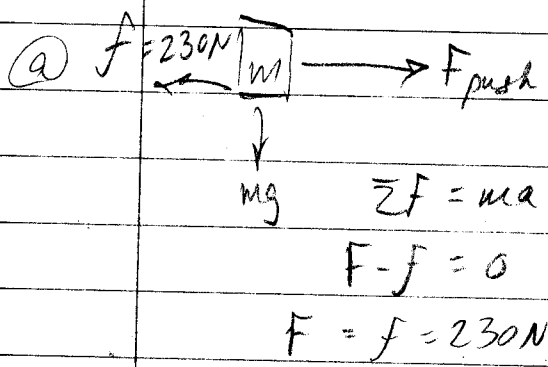 ⓐ f = 230N m F push
mg ΣF = ma
F - f = 0
F = f = 230N